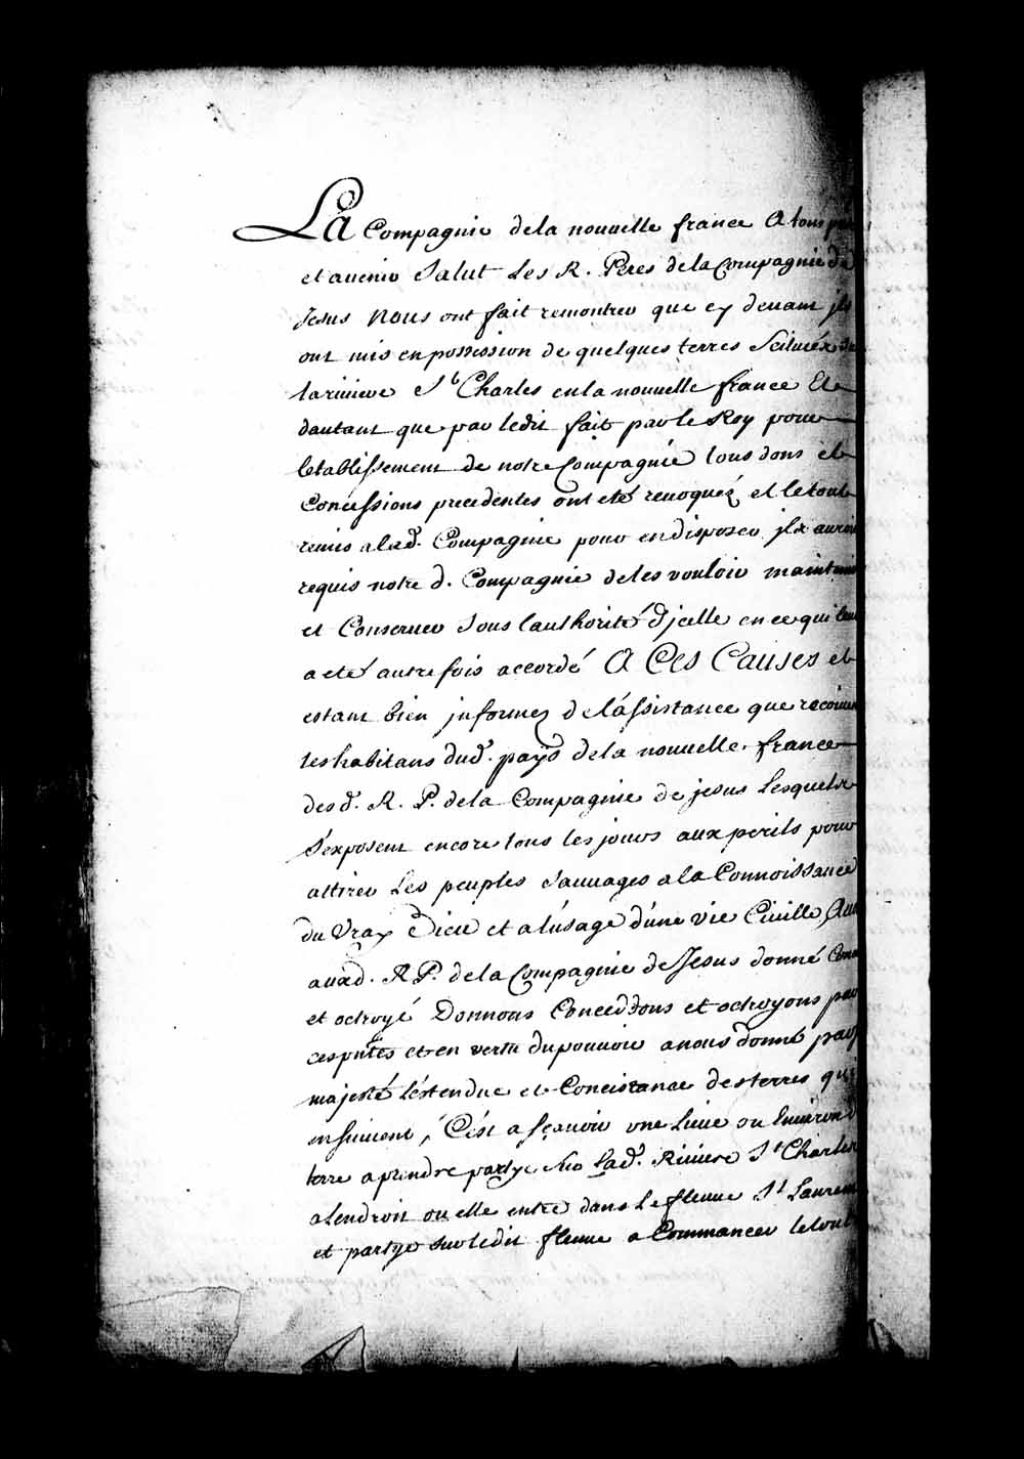 La Compagnie de la nouvelle france A tous
et avenir Salut Les R. Peres de la Compagnie de
Jesus nous ont fait remontrer que cy devant ils
ont mis en possession de quelques terres Scituéx
la riviere St Charles en la nouvelle france Et
dautant que par ledit fait par le Roy pour
letablissement de notre Compagnie tous dons et
Concessions precedentes ont eté revoquéz et le tout
remis a lad. Compagnie pour en disposer jlx
requis notre d. Compagnie de les vouloir
et Conserver Sous lauthorité Djcelle en ce qui
a eté autrefois accordé A Ces Causes et
estant bien jnformez de lássistance que
les habitans dud. pays de la nouvelle france
des d. R. P. de la Compagnie de jesus Lesquels
Séxposent encore tous les jours aux perils pour
attirer Les peuples Sauvages a la Connoissance
du Vray Dieu et a lúsage dúne vie Civille,
auxd. R P. de la Compagnie de Jesus donné
et octroyé Donnons Conceddons et octroyons par
ces pntes et en vertu du pouvoir a nous donné par
majesté Léstendue et Concistance des terres qui
ensuivent, Cést a sçavoir une Lieue ou Environ
terre a prendre partye Lad. Riviere St Charles
a lendroit ou elle entre dans Le fleuve St Laurent
et partye sur ledit fleuve a Commancer le tout